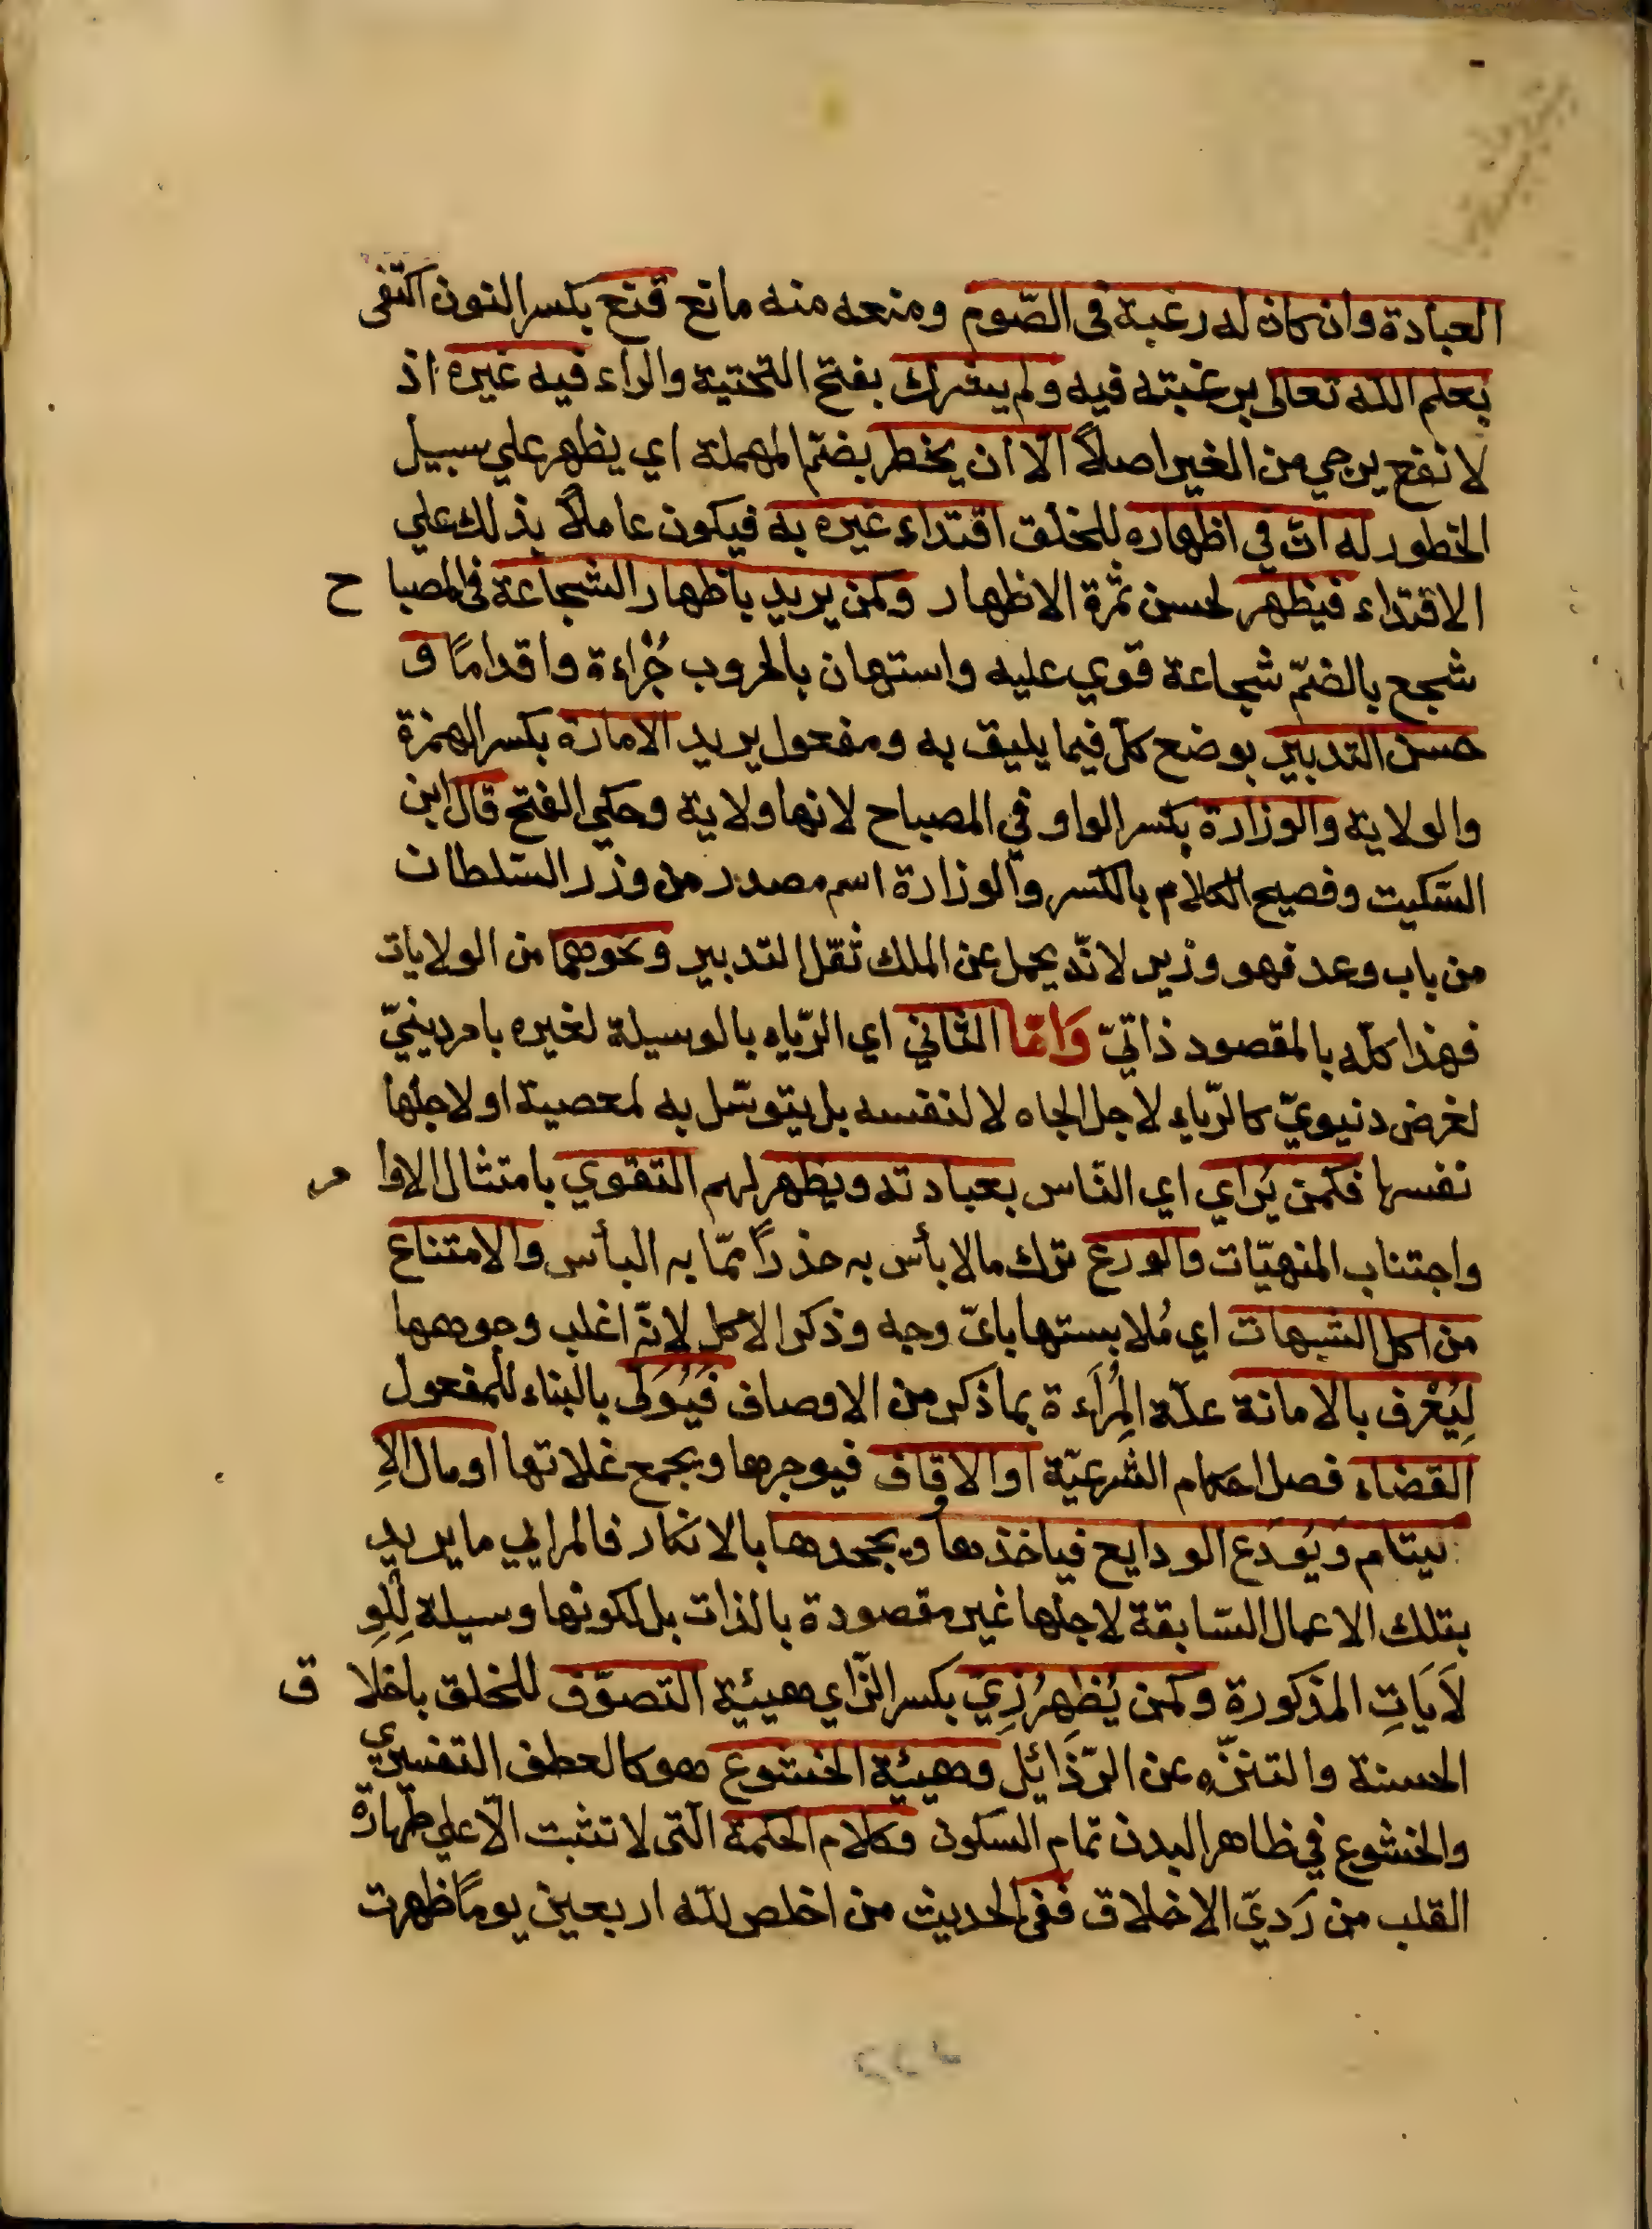 العبادة وان كان له رغبة فى الصّوم ومنعه منه مانع قنع بكسر النون اكتفى
بعلم الله تعالى برغبته فيه ولم يشرك بفتح التحتية والراء فيه غيره اذ
لا نفع يرجي من الغير اصلاً الّا ان يخطر بضمّ المهملة اي يظهر علي سبيل
الخطور له انّ في اظهاره للخلق اقتداء غيره به فيكون عاملاً بذلك علي
الاقتداء فيظهر لحسن ثمرة الاظهار وكمن يريد باظهار الشجاعة فى المصبا ح
شجع بالضمّ شجاعة قوي عليه واستهان بالحروب جُراءة واقدامًا و
حسن التدبير بوضع كلّ فيما يليق به ومفعول يريد الامارة بكسر الهمزة
والولاية والوزارة بكسر الواو في المصباح لانها ولاية وحكي الفتح قال ابن
السّكيت وفصيح الكلام بالكسر والوزارة اسم مصدر من وزر السّلطان
من باب وعد فهو وزير لانّه يحمل عن الملك ثقل التدبير ونحوهما من الولايات
فهذا كلّه بالمقصود ذاتيّ وَامّا الثاني اي الرّياء بالوسيلة لغيره بامر دينيّ
لغرض دنيويّ كالرّياء لاجل الجاه لا لنفسه بل يتوسّل به لمعصية او لاجلها
نفسها فكمن يَراي اي النّاس بعبادته ويظهر لهم التقوي بامتثال الاوا مر
واجتناب المنهيّات والورع ترك ما لا بأس به حذراً ممّا به البأس والامتناع
من اكل الشبهات اي مُلابستها بايّ وجه وذكر الاكل لانّه اغلب وجوهها
لِيُعْرف بالامانة علّة المِراءة بما ذكر من الاوصاف فَيُوَلى بالبناء للمفعول
القضاء فصل احكام الشرعيّة او الاوقاف فيوجرها ويجمع غلاتها او مال الاِ
يتام وَيُودَع الودايع فياخذها ويجحدها بالانكار فالمرايي ما يريد
بتلك الاعمال السّابقة لاجلها غير مقصودة بالذات بل لكونها وسيلة لِلوِ
لاَيَاتِ المذكورة وكمن يُظهِرُ زِيّ بكسر الزّاي هيئية التصوّف للخلق باخلا ق
الحسنة والتنزّه عن الرّذَائِل وهيئة الخشوع هو كالعطف التفسيري
والخشوع في ظاهر البدن تمام السكون وكلام الحكمة الّتى لا تثبت الّا علي طهارة
القلب من رَديّ الاخلاق ففى الحديث من اخلص للّه اربعين يومًا ظهرت